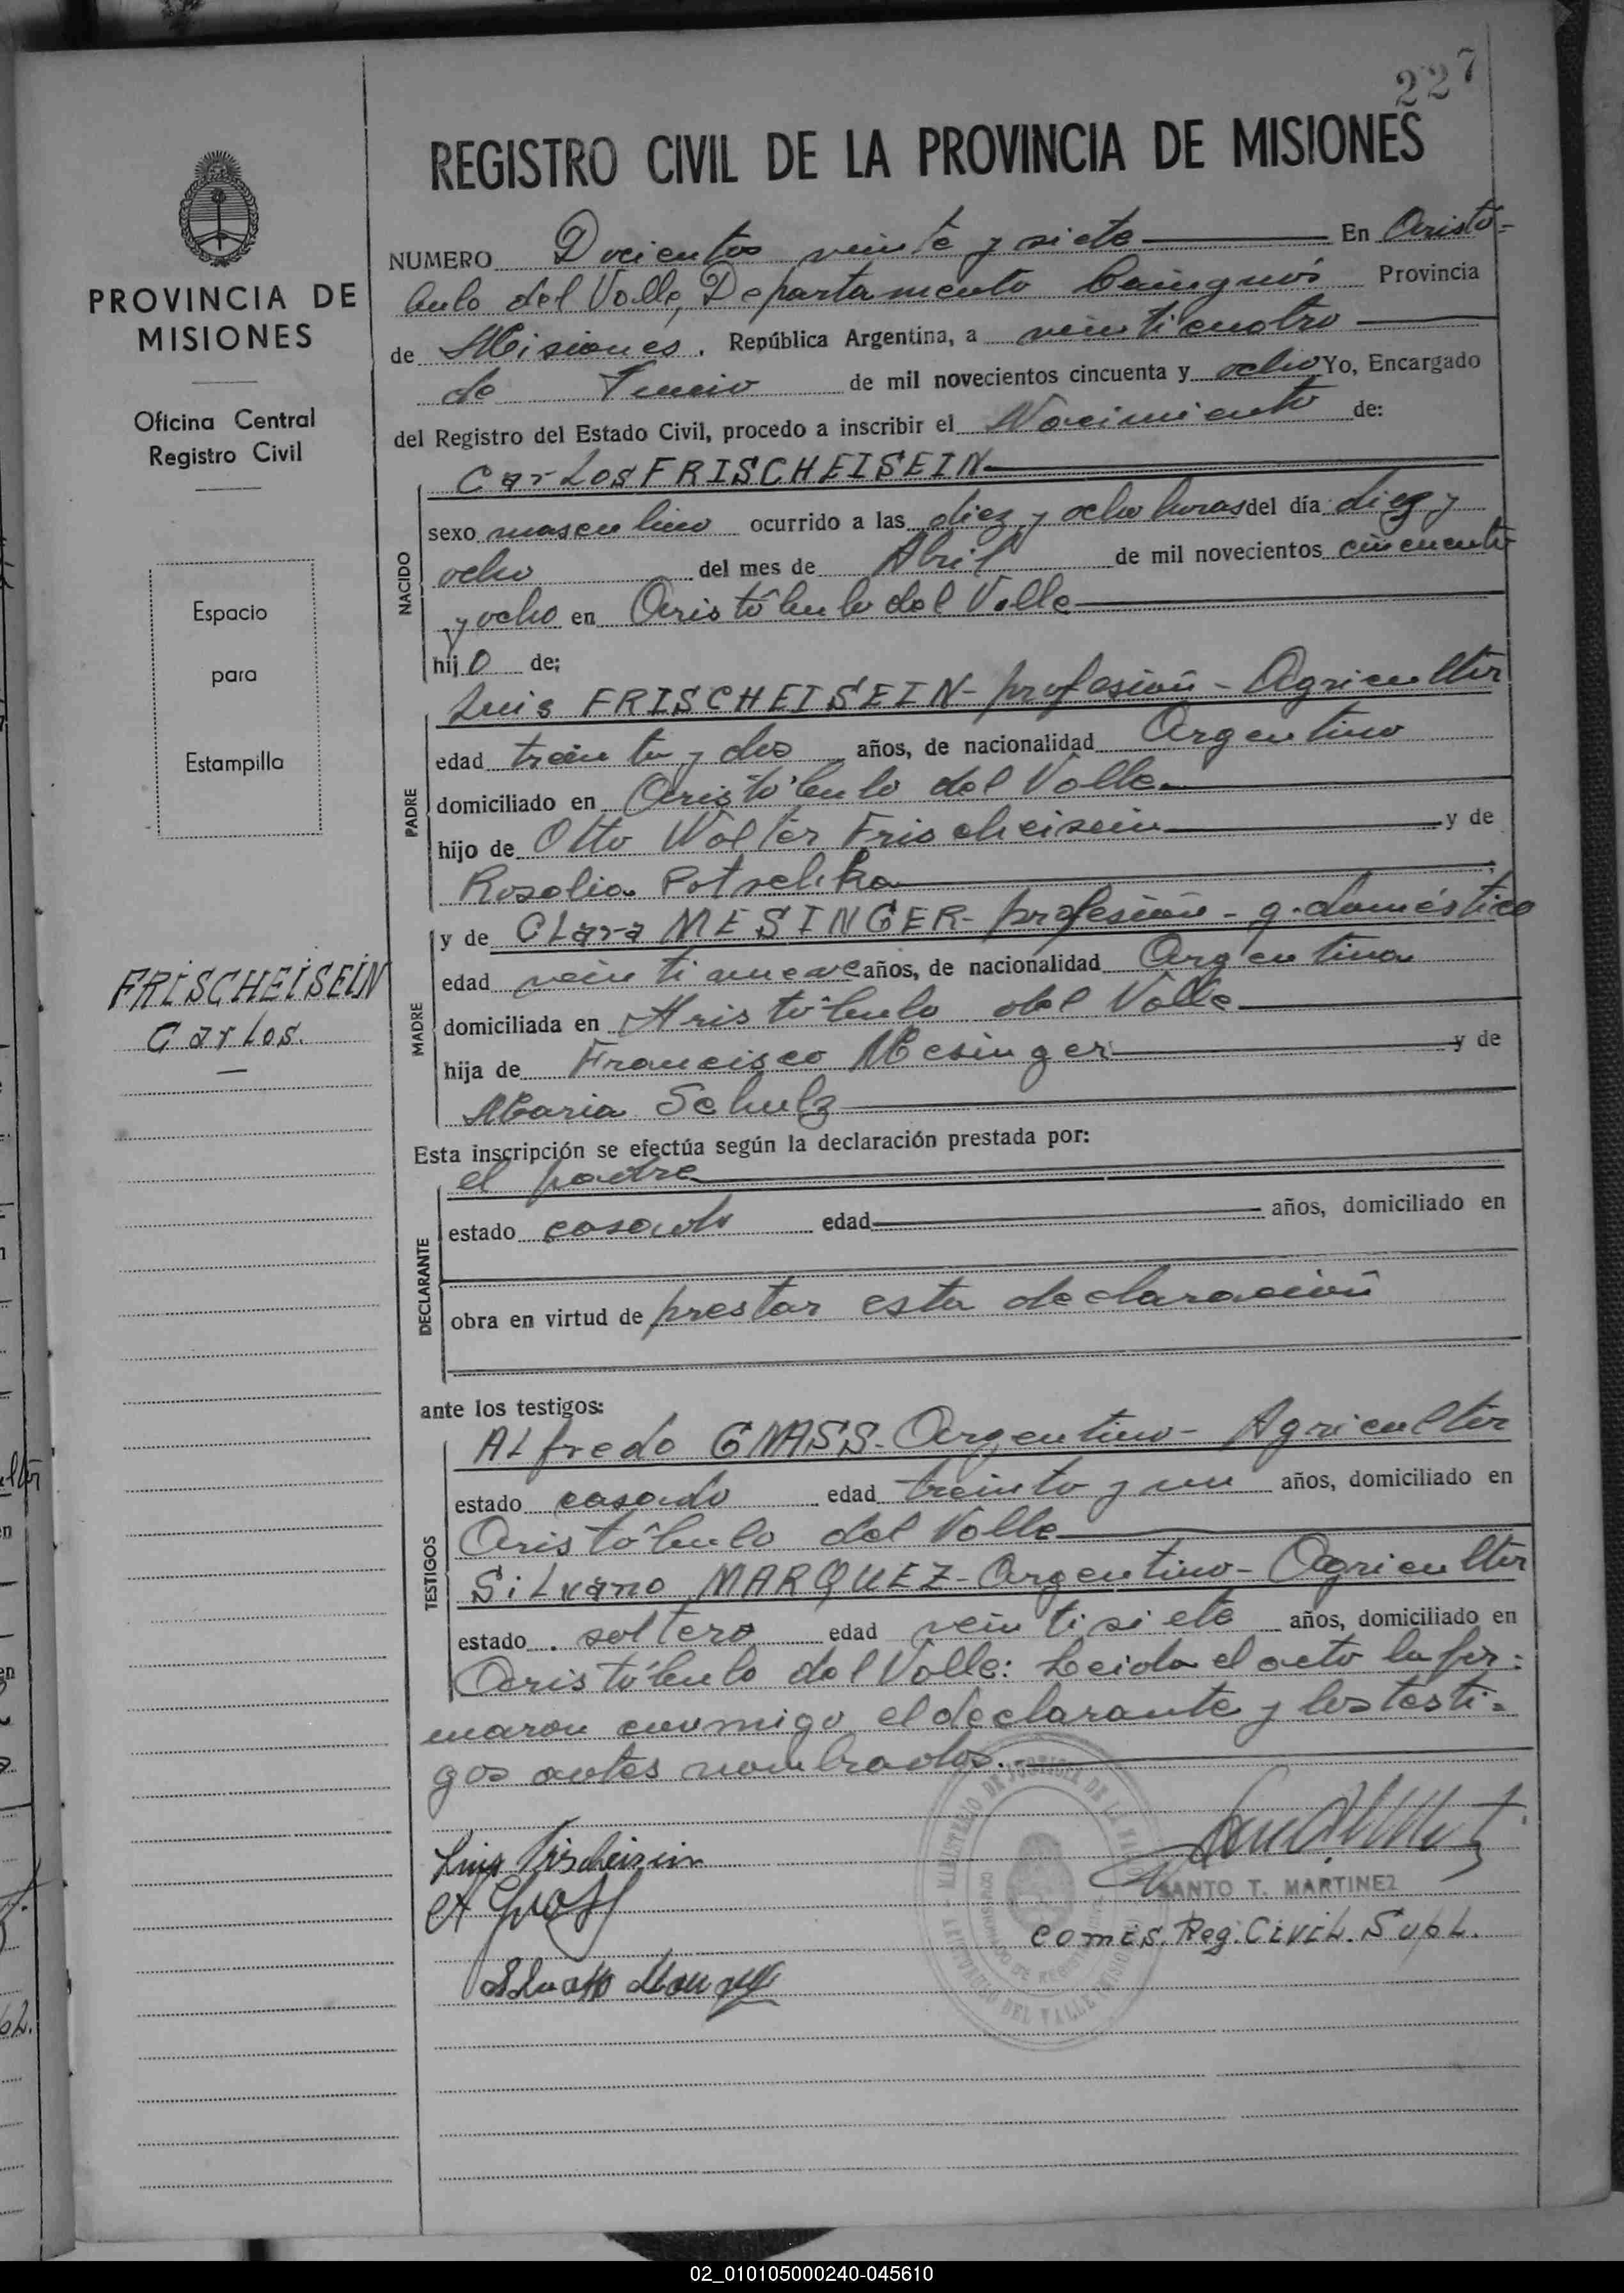 227
REGISTRO CIVIL DE LA PROVINCIA DE MISIONES
PROVINCIA DE
MISIONES
Oficina Central
Registro Civil
Espacio
para
Estampilla
FRISCHEISEIN
Carlos.
NUMERO Docientos veinte y siete En Aristó-
bulo del Valle, Departamento Cainguás Provincia
de Misiones. República Argentina, a veinticuatro
de Junio de mil novecientos cincuenta y ocho Yo, Encargado
del Registro del Estado Civil, procedo a inscribir el Nacimiento de:
NACIDO
Carlos FRISCHEISEIN
sexo masculino ocurrido a las diez y ocho horas del día diez y
ocho del mes de Abril de mil novecientos cincuenta
y ocho en Aristóbulo del Valle
hijo de:
PADRE
Luis FRISCHEISEIN - profesión - Agricultor
edad treinta y dos años, de nacionalidad Argentino
domiciliado en Aristóbulo del Valle
hijo de Otto Walter Frischeisein y de
Rosalia Potschka
MADRE
y de Clara MESINGER - profesión - q. doméstico
edad veintinueve años, de nacionalidad Argentina
domiciliada en Aristóbulo del Valle
hija de Francisco Mesinger y de
Maria Schulz
Esta inscripción se efectúa según la declaración prestada por:
DECLARANTE
el padre
estado casado edad años, domiciliado en
obra en virtud de prestar esta declaración
ante los testigos:
TESTIGOS
Alfredo GNASS - Argentino - Agricultor
estado casado edad treinta y un años, domiciliado en
Aristóbulo del Valle
Silvano MARQUEZ - Argentino - Agricultor
estado soltero edad veintisiete años, domiciliado en
Aristóbulo del Valle: Leida el acta la fir-
maron conmigo el declarante y los testi-
gos antes nombrados.
Luis Frischeisein
SANTO T. MARTINEZ
Comis. Reg. Civil. Supl.
02_010105000240-045610